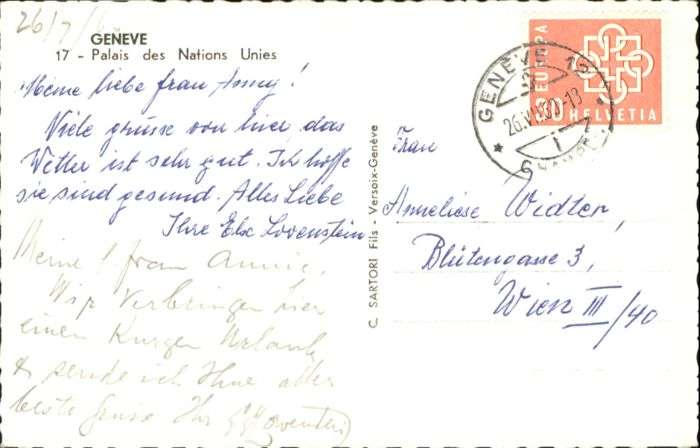 26/7/
GENEVE
17 - Palais des Nations Unies
Meine liebe frau Anny!
Viele grüsse von hier das
Wetter ist sehr gut. Ich hoffe
sie sind gesund. Alles Liebe
Ihre Else Lovenstein
Meine l frau Annie.
Wir Verbringen hier
einen Kurzen Urlaub
& sende ich Ihne alles
beste Grüsse Ihr
C. SARTORI Fils - Versoix-Genève
GENÈVE 12
26.VII.60-13
EUROPA
HELVETIA
Frau
Anneliese Widter,
Blütengasse 3,
Wien III/40